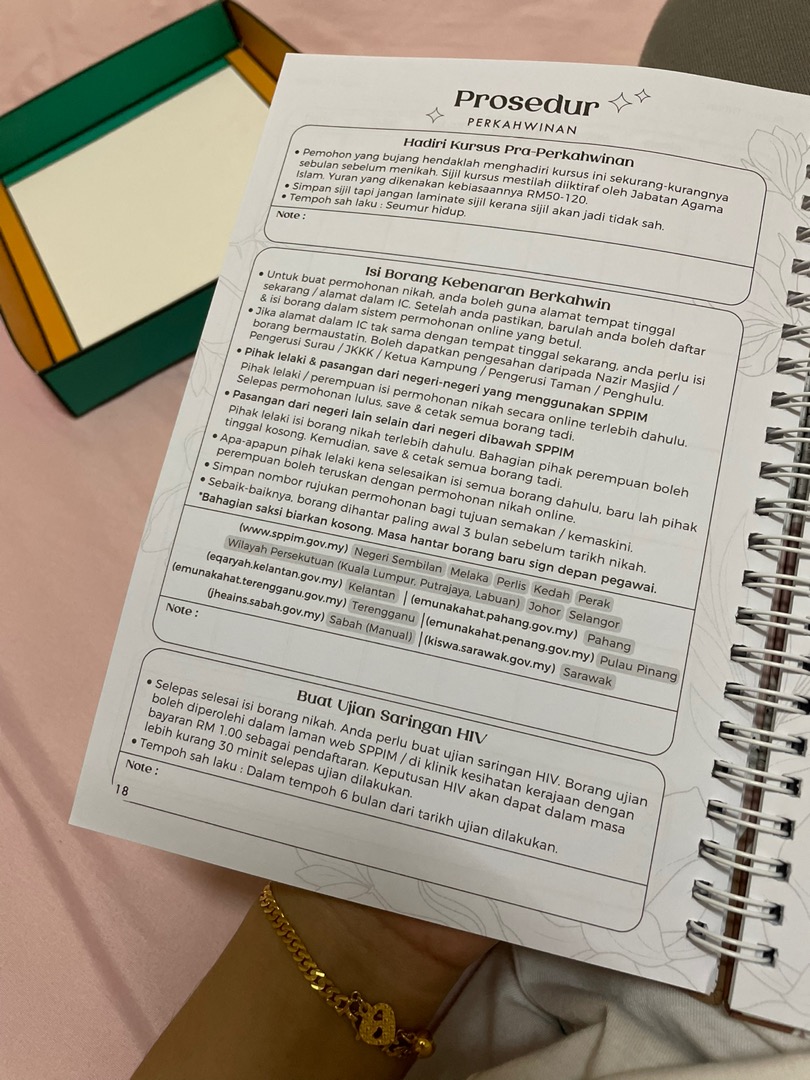 Prosedur
PERKAHWINAN
Hadiri Kursus Pra-Perkahwinan
• Pemohon yang bujang hendaklah menghadiri kursus ini sekurang-kurangnya
sebulan sebelum menikah. Sijil kursus mestilah diiktiraf oleh Jabatan Agama
Islam. Yuran yang dikenakan kebiasaannya RM50-120.
• Simpan sijil tapi jangan laminate sijil kerana sijil akan jadi tidak sah.
• Tempoh sah laku : Seumur hidup.
Note :
Isi Borang Kebenaran Berkahwin
• Untuk buat permohonan nikah, anda boleh guna alamat tempat tinggal
sekarang / alamat dalam IC. Setelah anda pastikan, barulah anda boleh daftar
& isi borang dalam sistem permohonan online yang betul.
• Jika alamat dalam IC tak sama dengan tempat tinggal sekarang, anda perlu isi
borang bermaustatin. Boleh dapatkan pengesahan daripada Nazir Masjid /
Pengerusi Surau / JKKK / Ketua Kampung / Pengerusi Taman / Penghulu.
• Pihak lelaki & pasangan dari negeri-negeri yang menggunakan SPPIM
Pihak lelaki / perempuan isi permohonan nikah secara online terlebih dahulu.
Selepas permohonan lulus, save & cetak semua borang tadi.
• Pasangan dari negeri lain selain dari negeri dibawah SPPIM
Pihak lelaki isi borang nikah terlebih dahulu. Bahagian pihak perempuan boleh
tinggal kosong. Kemudian, save & cetak semua borang tadi.
• Apa-apapun pihak lelaki kena selesaikan isi semua borang dahulu, baru lah pihak
perempuan boleh teruskan dengan permohonan nikah online.
• Simpan nombor rujukan permohonan bagi tujuan semakan / kemaskini.
• Sebaik-baiknya, borang dihantar paling awal 3 bulan sebelum tarikh nikah.
*Bahagian saksi biarkan kosong. Masa hantar borang baru sign depan pegawai.
(www.sppim.gov.my) Negeri Sembilan Melaka Perlis Kedah Perak
Wilayah Persekutuan (Kuala Lumpur, Putrajaya, Labuan) Johor Selangor
(eqaryah.kelantan.gov.my) Kelantan | (emunakahat.pahang.gov.my) Pahang
(emunakahat.terengganu.gov.my) Terengganu | (emunakahat.penang.gov.my) Pulau Pinang
(jheains.sabah.gov.my) Sabah (Manual) | (kiswa.sarawak.gov.my) Sarawak
Note :
Buat Ujian Saringan HIV
• Selepas selesai isi borang nikah. Anda perlu buat ujian saringan HIV. Borang ujian
boleh diperolehi dalam laman web SPPIM / di klinik kesihatan kerajaan dengan
bayaran RM 1.00 sebagai pendaftaran. Keputusan HIV akan dapat dalam masa
lebih kurang 30 minit selepas ujian dilakukan.
• Tempoh sah laku : Dalam tempoh 6 bulan dari tarikh ujian dilakukan.
Note :
18